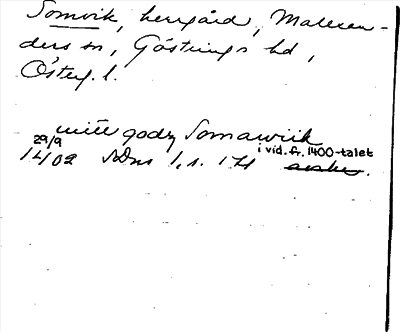 Somvik, herrgård, Mallexan-
ders sn, Göstrings hd,
Österg. l.
mitt godz Somawiik
29/9 1402 SDns 1, s. 171 i vid. fr. 1400-talet